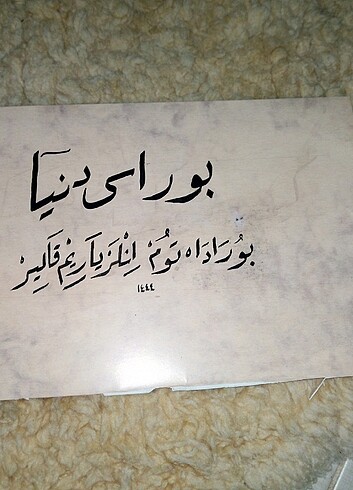 بوراسی دنیا
بُورَادَاه تومْ اِنْلَرْ يَارِیِمْ قَالِیرْ
١٤٤٤